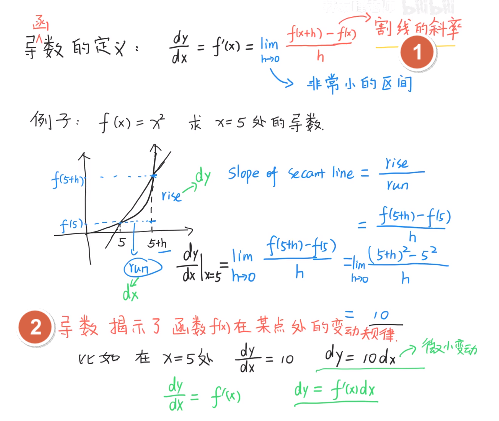 导函数的定义: dy/dx = f'(x) = lim h→0 f(x+h) - f(x) / h → 割线的斜率
1
→ 非常小的区间
例子: f(x) = x² 求 x=5 处的导数.
f(5+h)
f(5)
rise → dy
5 5+h
run
dx
Slope of secant line = rise/run
= f(5+h) - f(5) / h
dy/dx |x=5 = lim h→0 f(5+h) - f(5) / h = lim h→0 (5+h)² - 5² / h
= 10
2 导数 揭示了 函数f(x)在某点处的变动规律.
比如 在 x=5处 dy/dx = 10 dy = 10 dx → 微小变动
dy/dx = f'(x) dy = f'(x)dx